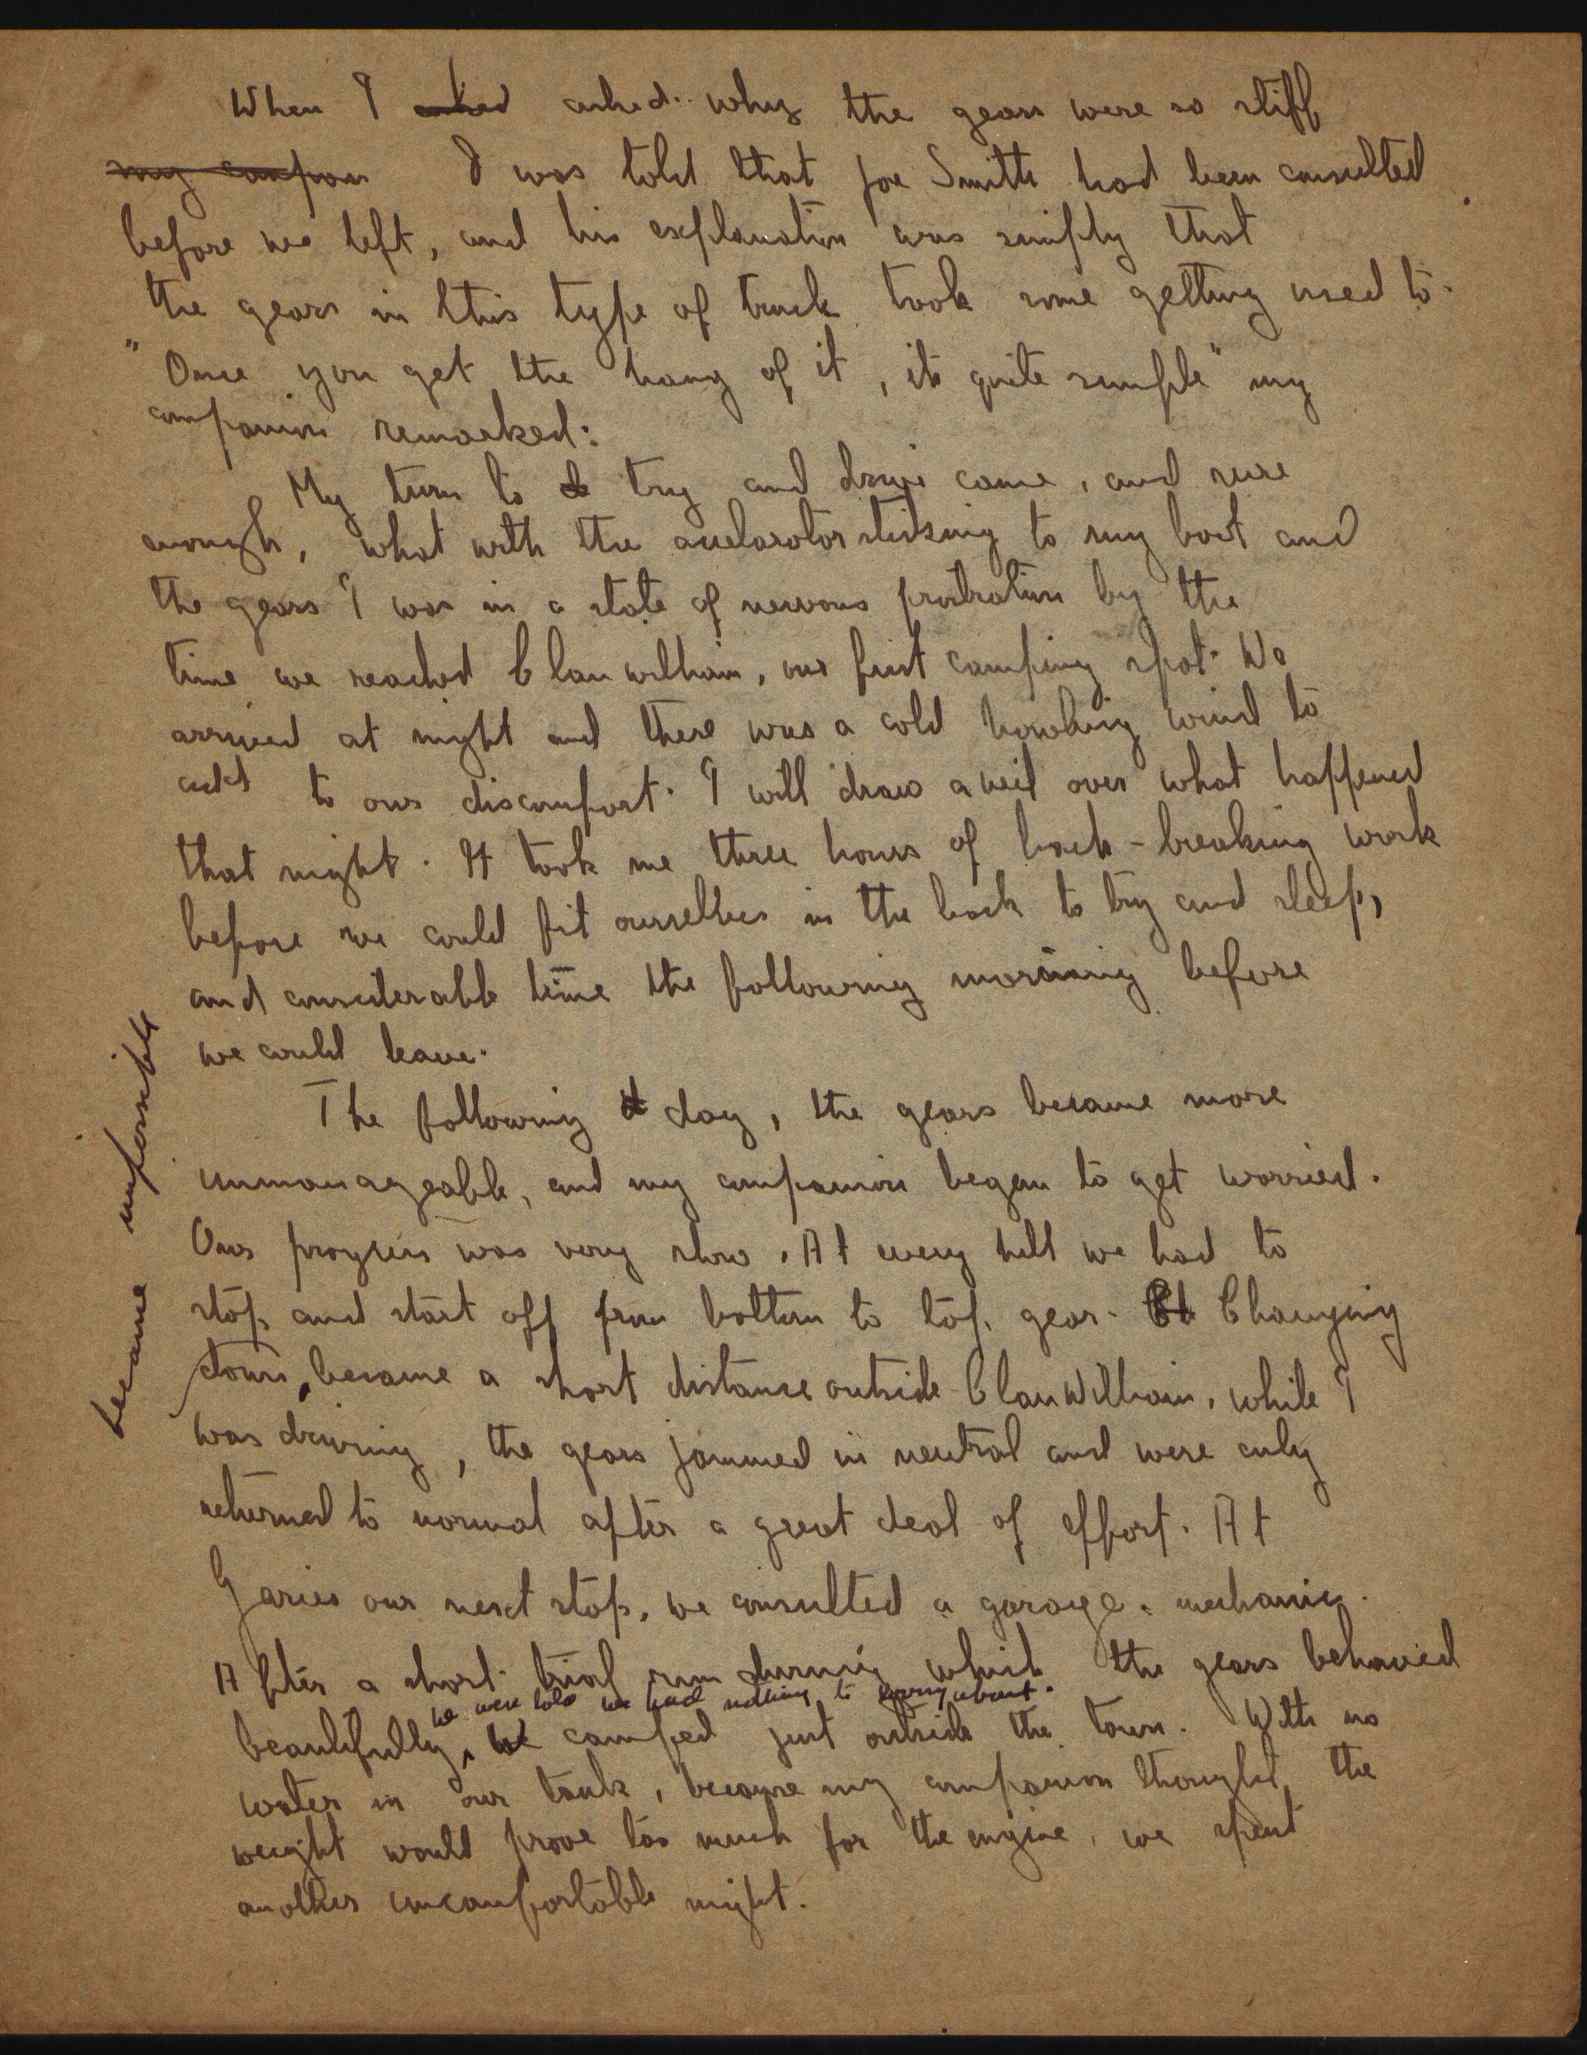 When I asked asked why the gears were so stiff
my compan I was told that Joe Smith had been consulted
before we left, and his explanation was simply that
the gears in this type of truck took some getting used to.
"Once you get the hang of it, its quite simple" my
companion remarked:
My turn to try and drive came, and sure
enough, what with the accelarator sticking to my boot and
the gears I was in a state of nervous prostration by the
time we reached Clanwilliam, our first camping spot. We
arrived at night and there was a cold howling wind to
add to our discomfort. I will draw a veil over what happened
that night. It took me three hours of back-breaking work
before we could fit ourselves in the back to try and sleep,
and considerable time the following morning before
we could leave.
The following day, the gears became more
unmanageable, and my companion began to get worried.
Our progress was very slow. At every hill we had to
stop and start off from bottom to top gear. Changing
became impossible
down, became a short distance outside Clanwilliam, while I
was driving, the gears jammed in neutral and were only
returned to normal after a great deal of effort. At
Garies our next stop, we consulted a garage mechanic.
After a short trial run during which the gears behaved
we were told we had nothing to worry about.
beautifully, We camped just outside the town. With no
water in our tank, because my companion thought the
weight would prove too much for the engine, we spent
another uncomfortable night.